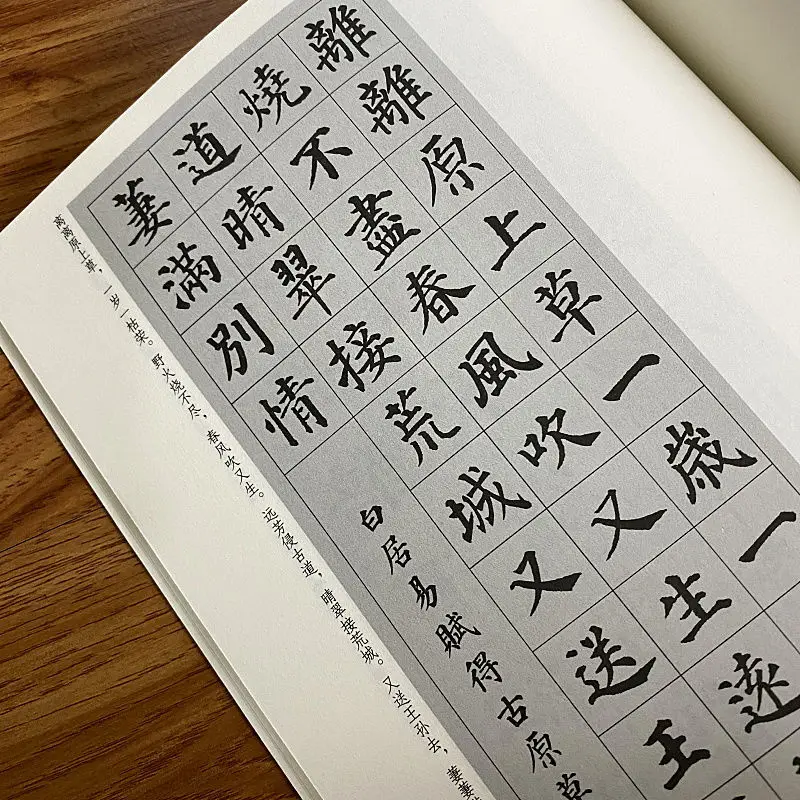 離離原上草一歲一
燒不盡春風吹又生遠
道晴翠接荒城又送王
萋滿別情
白居易賦得古原草
离离原上草，一岁一枯荣。野火烧不尽，春风吹又生。远芳侵古道，晴翠接荒城。又送王孙去，萋萋